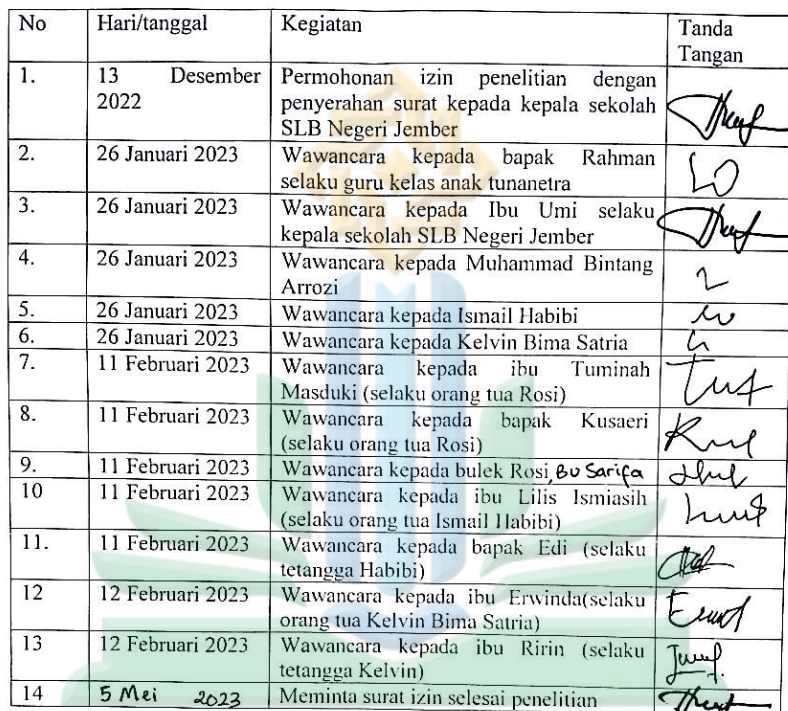 No Hari/tanggal Kegiatan Tanda
Tangan
1. 13 Desember Permohonan izin penelitian dengan
2022 penyerahan surat kepada kepala sekolah
SLB Negeri Jember
2. 26 Januari 2023 Wawancara kepada bapak Rahman
selaku guru kelas anak tunanetra
3. 26 Januari 2023 Wawancara kepada Ibu Umi selaku
kepala sekolah SLB Negeri Jember
4. 26 Januari 2023 Wawancara kepada Muhammad Bintang
Arrozi
5. 26 Januari 2023 Wawancara kepada Ismail Habibi
6. 26 Januari 2023 Wawancara kepada Kelvin Bima Satria
7. 11 Februari 2023 Wawancara kepada ibu Tuminah
Masduki (selaku orang tua Rosi)
8. 11 Februari 2023 Wawancara kepada bapak Kusaeri
(selaku orang tua Rosi)
9. 11 Februari 2023 Wawancara kepada bulek Rosi, Bu Sarifa
10 11 Februari 2023 Wawancara kepada ibu Lilis Ismiasih
(selaku orang tua Ismail Habibi)
11. 11 Februari 2023 Wawancara kepada bapak Edi (selaku
tetangga Habibi)
12 12 Februari 2023 Wawancara kepada ibu Erwinda(selaku
orang tua Kelvin Bima Satria)
13 12 Februari 2023 Wawancara kepada ibu Ririn (selaku
tetangga Kelvin)
14 5 Mei 2023 Meminta surat izin selesai penelitian